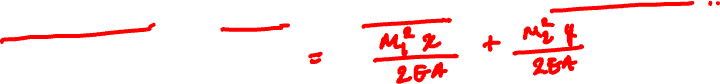 = \frac{N_1^2 x}{2EA} + \frac{N_2^2 y}{2EA}